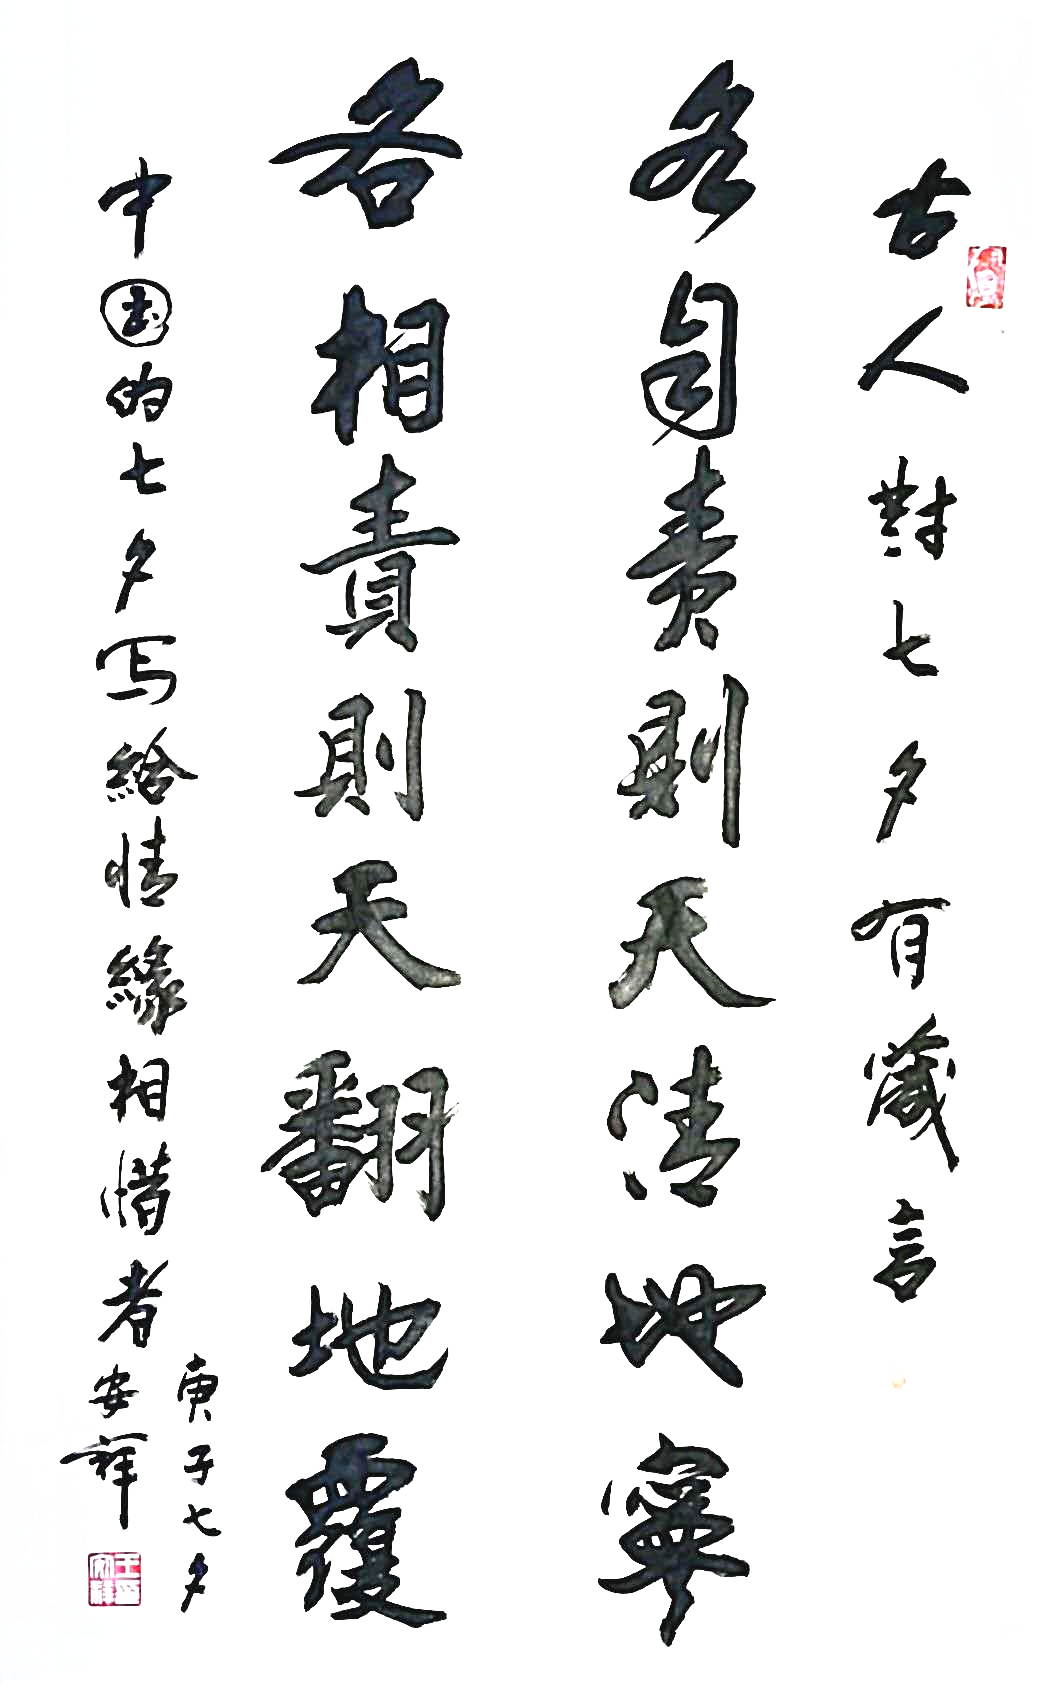 古人對七夕有箴言
各自責則天清地寧
各相責則天翻地覆
中国的七夕写給情緣相惜者
庚子七夕
安祥